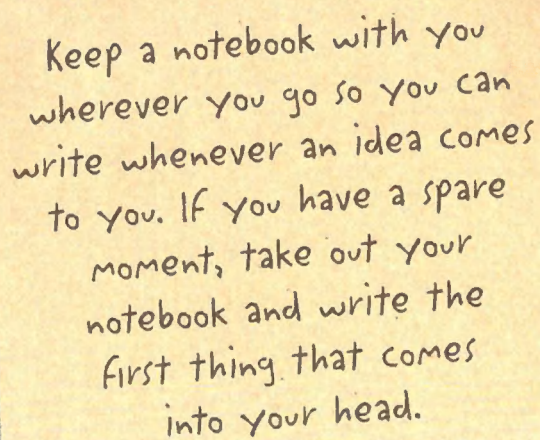 Keep a notebook with you
wherever you go so you can
write whenever an idea comes
to you. If you have a spare
moment, take out your
notebook and write the
first thing that comes
into your head.